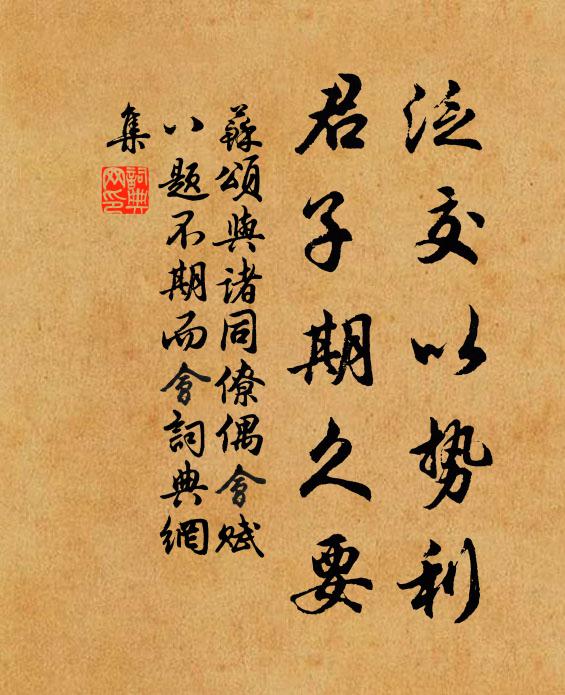 泛交以势利
君子期久要
蘇頌與諸同僚偶會賦
八題不期而會詞典網
集
詞典
网印